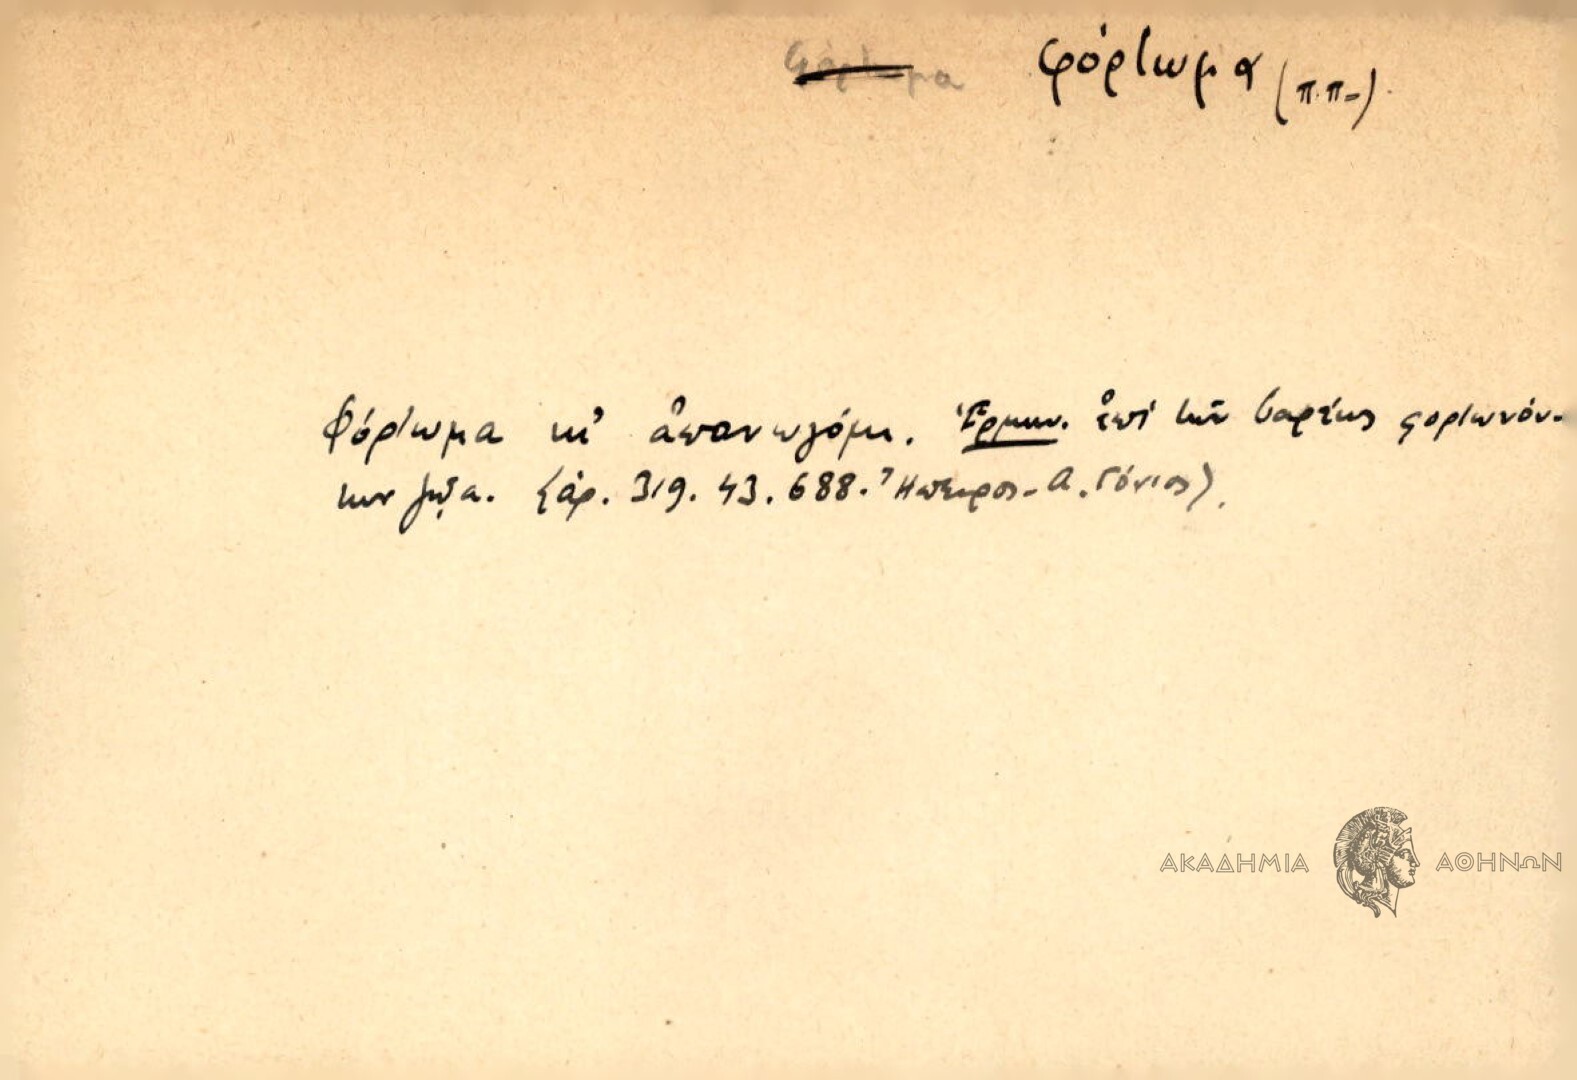 φόρτωμα (π.π.)
Φόρτωμα κι' ἀπανωγόμι. Ἑρμην. ἐπὶ τῶν βαρέως φορτωνόν-
των ζῷα. (ἀρ. 319. 43. 688. Ἤπειρος - Α. Γόνιος).
ΑΚΑΔΗΜΙΑ ΑΘΗΝΩΝ